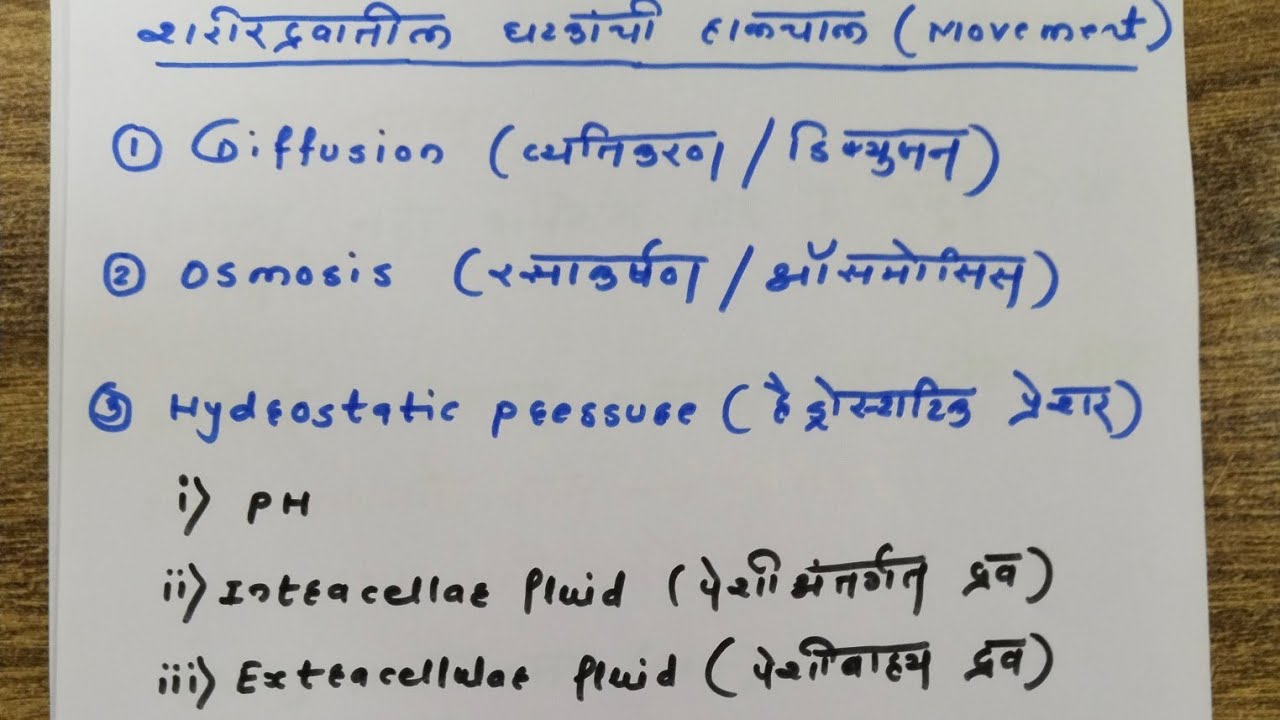 शरीरद्रवातील घटकांची हालचाल (Movement)
① Diffusion (व्यतिकरण / डिफ्युजन)
② Osmosis (रसाकर्षण / ऑसमोसिस)
③ Hydrostatic pressure (हैड्रोस्टाटिक प्रेशर)
i) PH
ii) Intracellar fluid (पेशीअंतर्गत द्रव)
iii) Extracellular fluid (पेशीबाह्य द्रव)